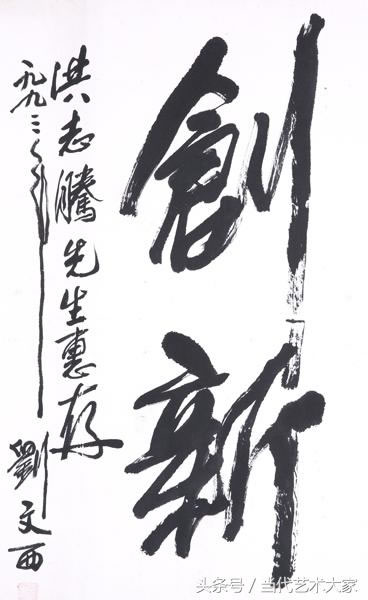 創新
洪志騰先生惠存
一九九三年
劉文西
头条号／当代艺术大家